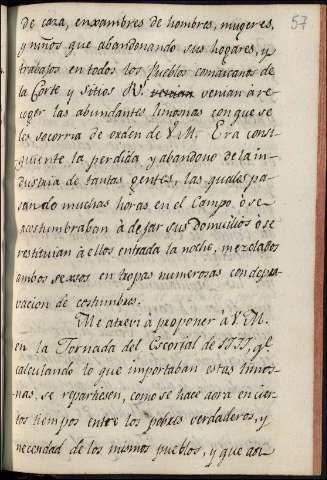 57
de caza, enxambres de hombres, mugeres,
y niños que abandonando sus hogares, y
trabajos en todos los Pueblos comarcanos de
la Corte y Sitios Rs. venian venian à re-
coger las abundantes limosnas con que se
les socorria de orden de V. M. Era consi-
guiente la perdida y abandono de la in-
dustria de tantas gentes, las quales pa-
sando muchas horas en el Campo, ò se
acostumbraban à dejar sus Domicilios ò se
restituian à ellos entrada la noche, mezclados
ambos sexos en tropas numerosas con depra-
vacion de costumbres.
Me atrevi à proponer à V. M.
en la Jornada del Escorial de 1777, qe.
calculando lo que importaban estas limos-
nas, se repartiesen, como se hace aora en cier-
tos tiempos entre los pobres verdaderos, y
necesidad de los mismos pueblos, y que asi-